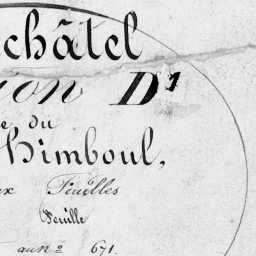 châtel
ion D¹
e du
himboul,
ux Feuilles
Feuille
au n° 671.